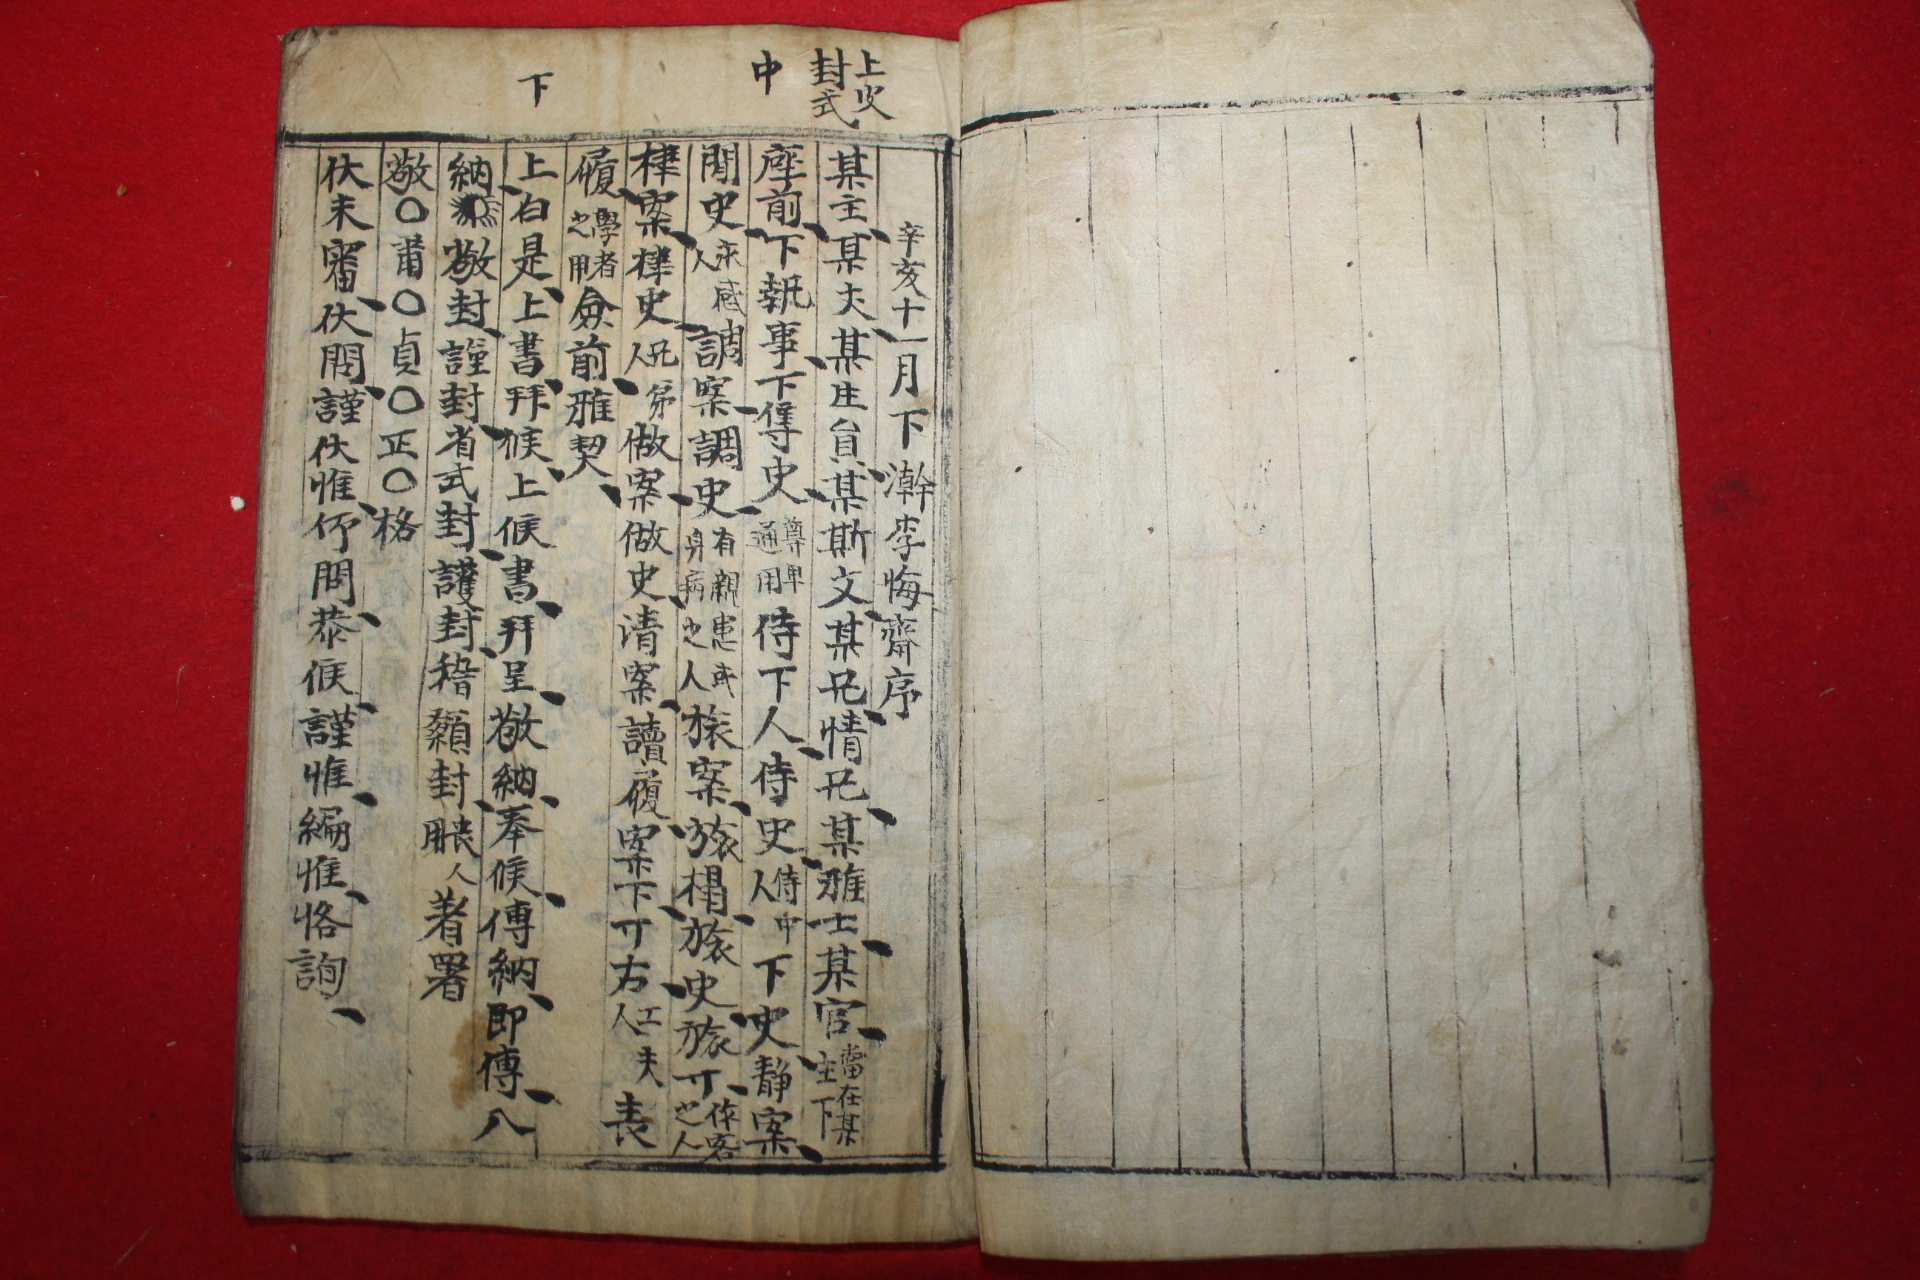 上皮
封式
中
下
辛亥十一月下澣李悔齋序
某主某丈某生員某斯文某兄情兄某雅士某官當在某主下
座前下執事下隼史尊卑通用侍下人侍史侍中人下史静案
閒史人調案調史有親患或身病之人旅案旅榻旅史旅丌作客之人
棣案棣史兄弟人做案做史清案讀履案下丌右工夫人表
履學者之用僉前雅契
上白是上書拜候上候書拜呈敬納奉候傳納即傳入
納敬封謹封省式封護封稽顙封人着署
敬○莆○貞○正○格
伏未審伏問謹伏惟仰問恭候謹惟編惟恪詢